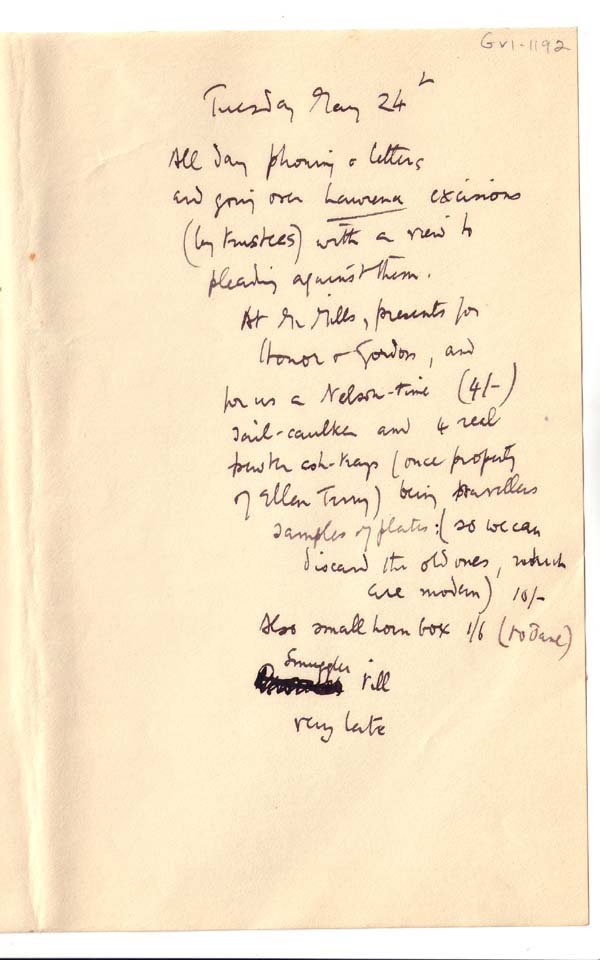 GVI-1192
Tuesday May 24th
All day phoning & letters
and going over Lawrence excisions
(by trustees) with a view to
pleading against them.
At Mr Mills, presents for
Honor & Gordon, and
for us a Nelson-time (4/-)
sail-caulker and 4 real
pewter ash-trays (once property
of Ellen Terry) being travellers
samples of plates: (so we can
discard the old ones, which
are modern) 10/-
Also small horn box 1/6 (to Jane)
Smuggler till
very late